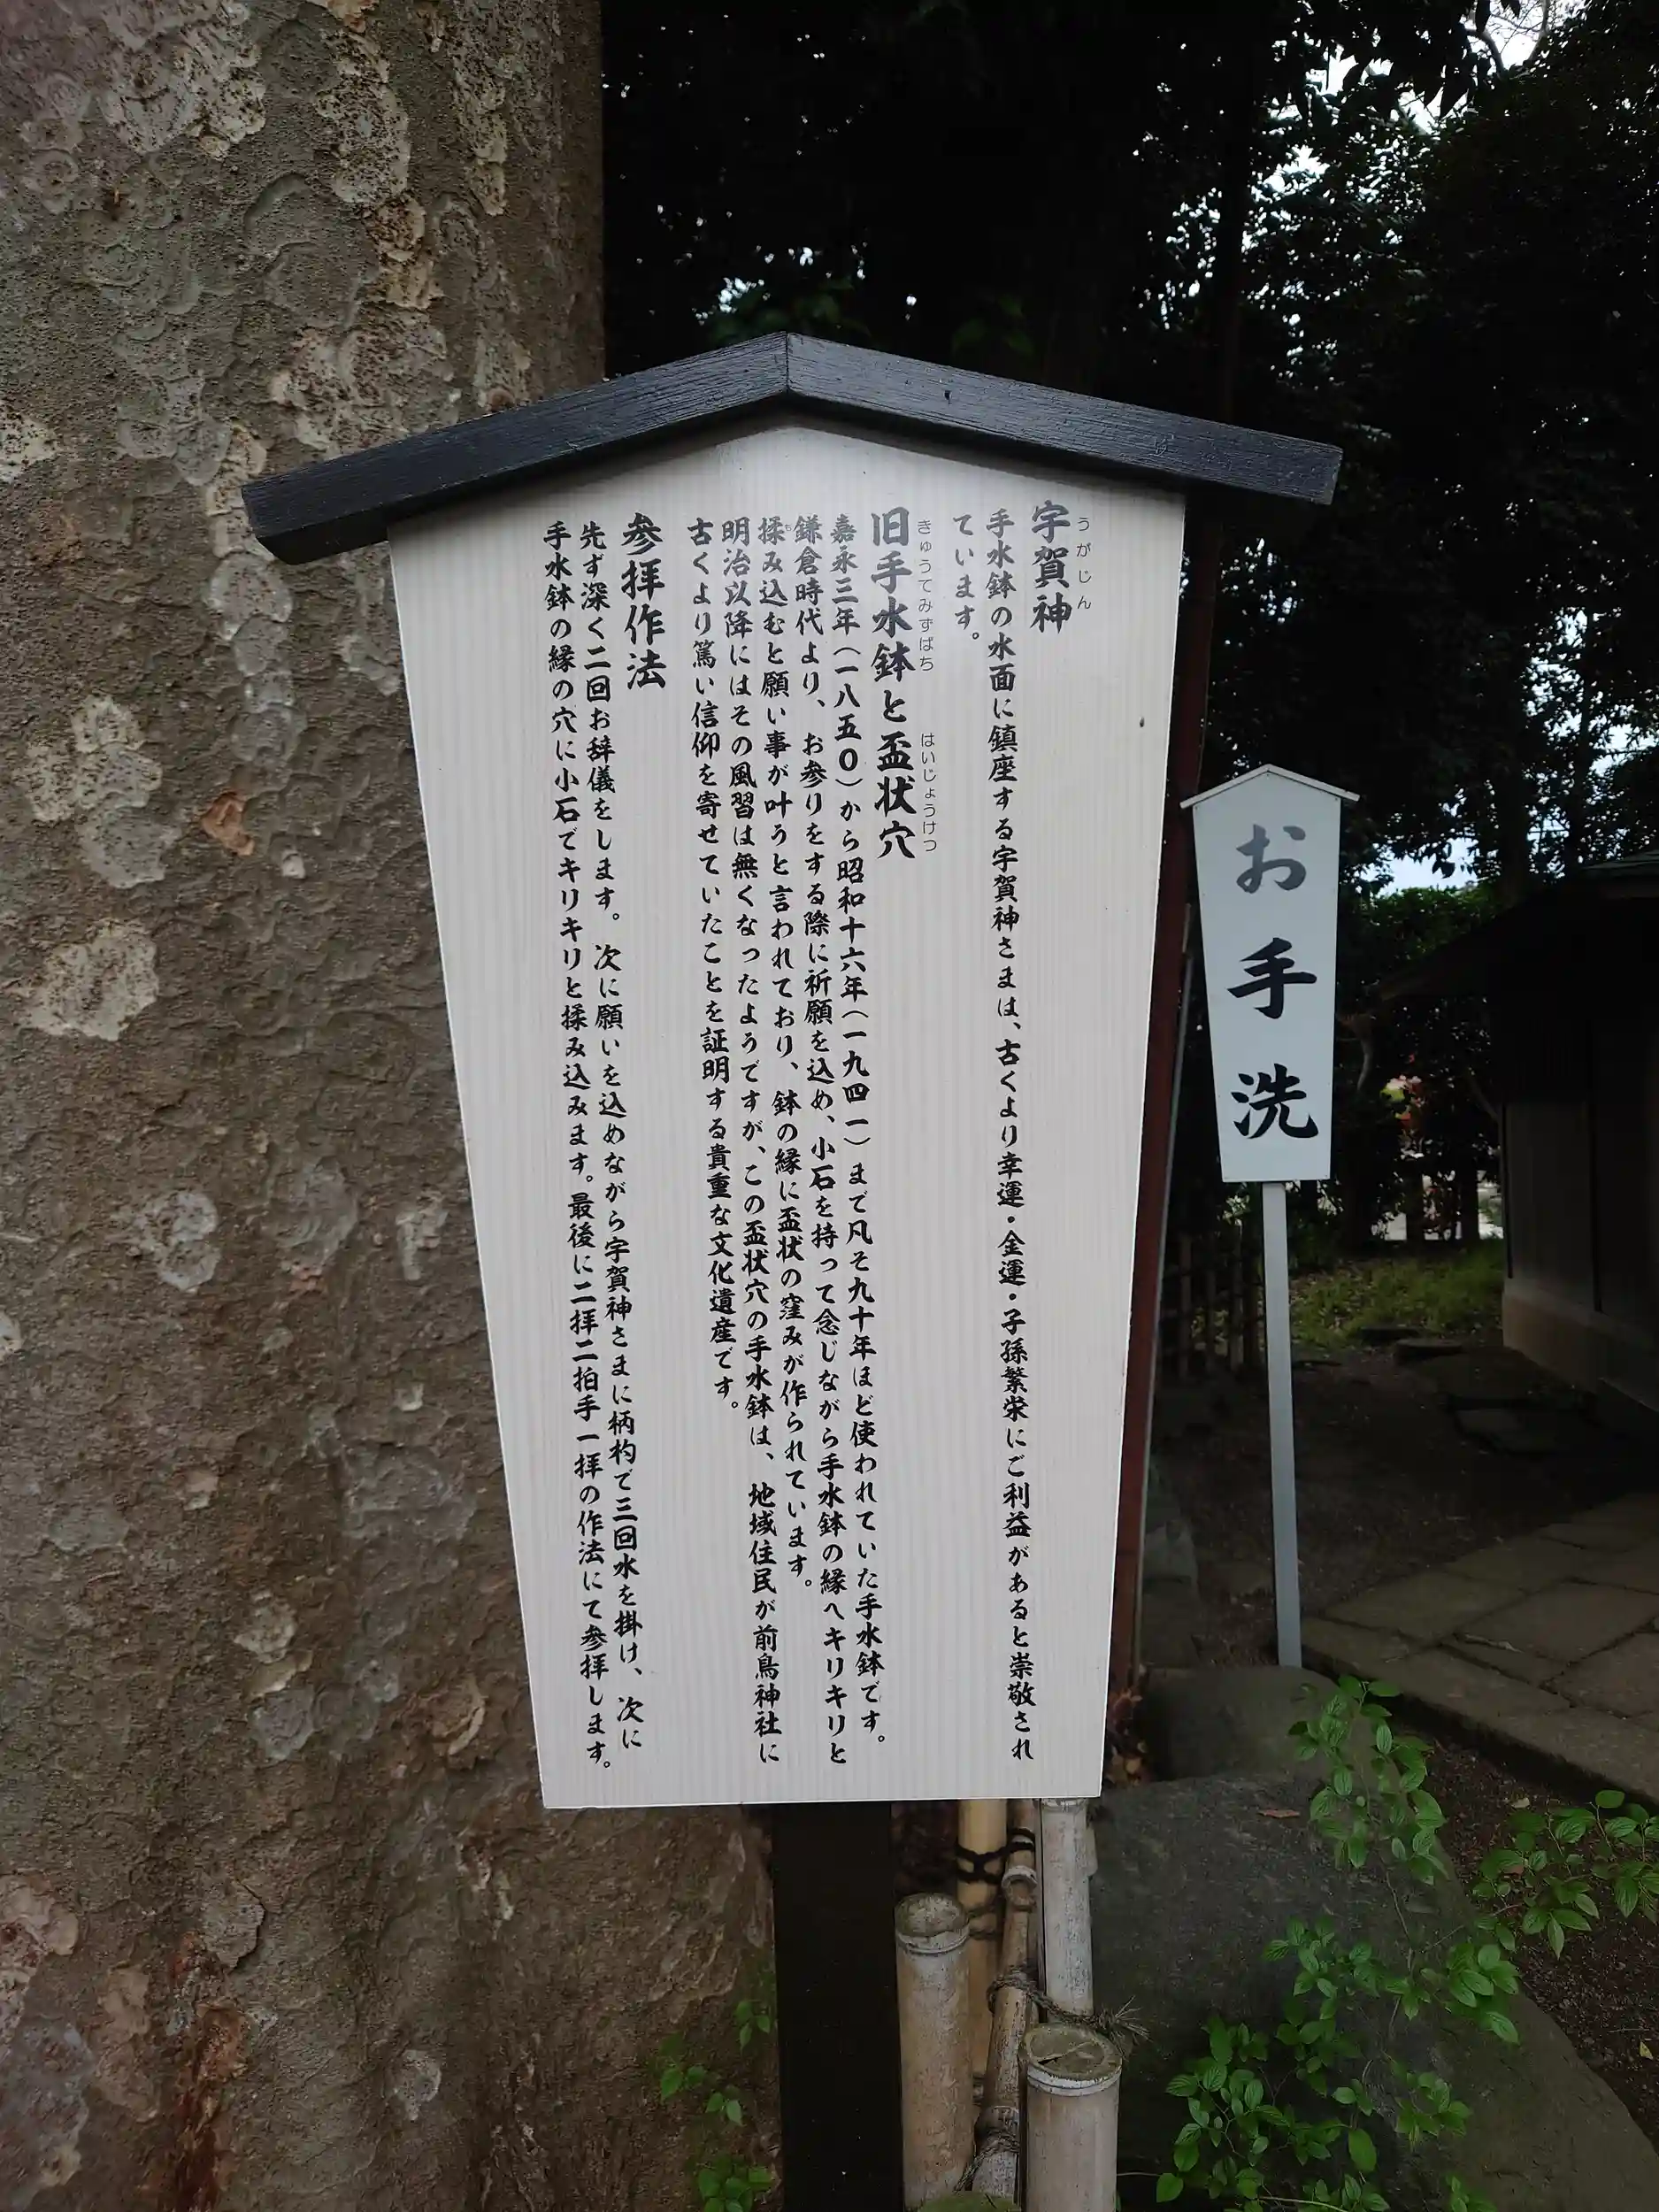 宇賀神
うがじん
手水鉢の水面に鎮座する宇賀神さまは、古くより幸運・金運・子孫繁栄にご利益があると崇敬され
ています。
旧手水鉢と盃状穴
きゅうてみずばち
はいじょうけつ
嘉永三年(一八五〇)から昭和十六年(一九四一)まで凡そ九十年ほど使われていた手水鉢です。
鎌倉時代より、お参りをする際に祈願を込め、小石を持って念じながら手水鉢の縁へキリキリと
揉み込むと願い事が叶うと言われており、鉢の縁に盃状の窪みが作られています。
も
明治以降にはその風習は無くなったようですが、この盃状穴の手水鉢は、地域住民が前鳥神社に
古くより篤い信仰を寄せていたことを証明する貴重な文化遺産です。
参拝作法
先ず深く二回お辞儀をします。次に願いを込めながら宇賀神さまに柄杓で三回水を掛け、次に
手水鉢の縁の穴に小石でキリキリと揉み込みます。最後に二拝二拍手一拝の作法にて参拝します。
お手洗